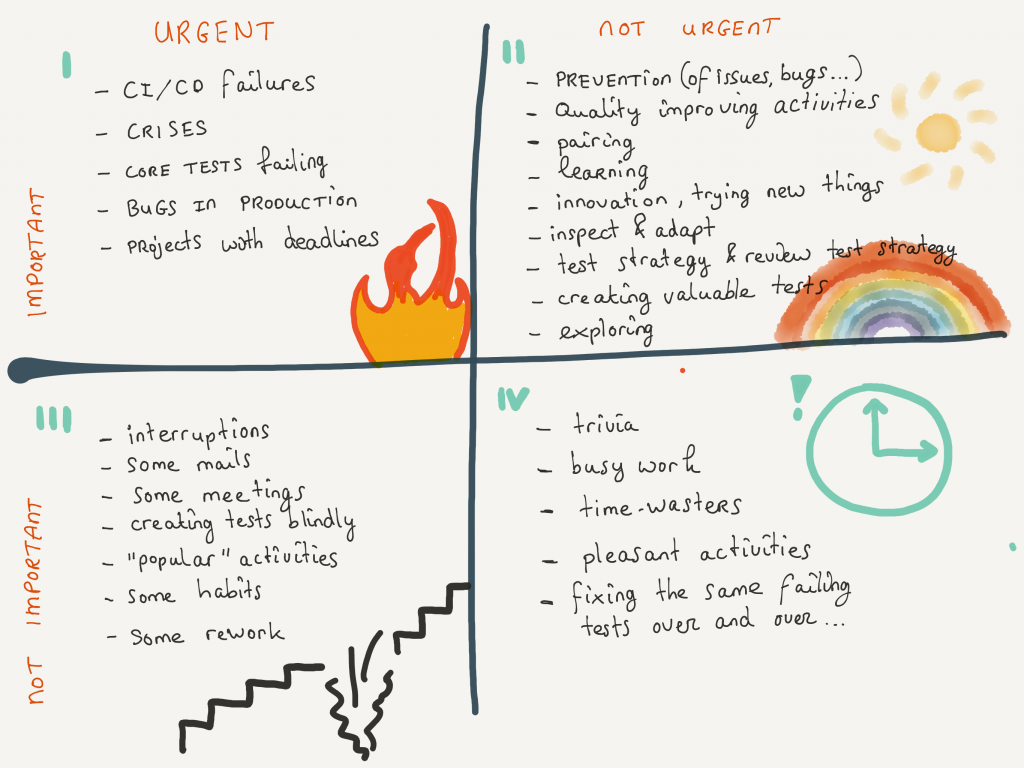 URGENT
NOT URGENT
IMPORTANT
I
- CI/CD failures
- CRISES
- CORE TESTS failing
- BUGS IN PRODUCTION
- PROjects with deadlines
II
- PREVENTION (of issues, bugs...)
- Quality improving activities
- pairing
- learning
- innovation, trying new things
- inspect & adapt
- test strategy & review test strategy
- creating valuable tests
- exploring
NOT IMPORTANT
III
- interruptions
- some mails
- some meetings
- creating tests blindly
- "popular" activities
- some habits
- some rework
IV
- trivia
- busy work
- time-wasters
- pleasant activities
- fixing the same failing
tests over and over...
!